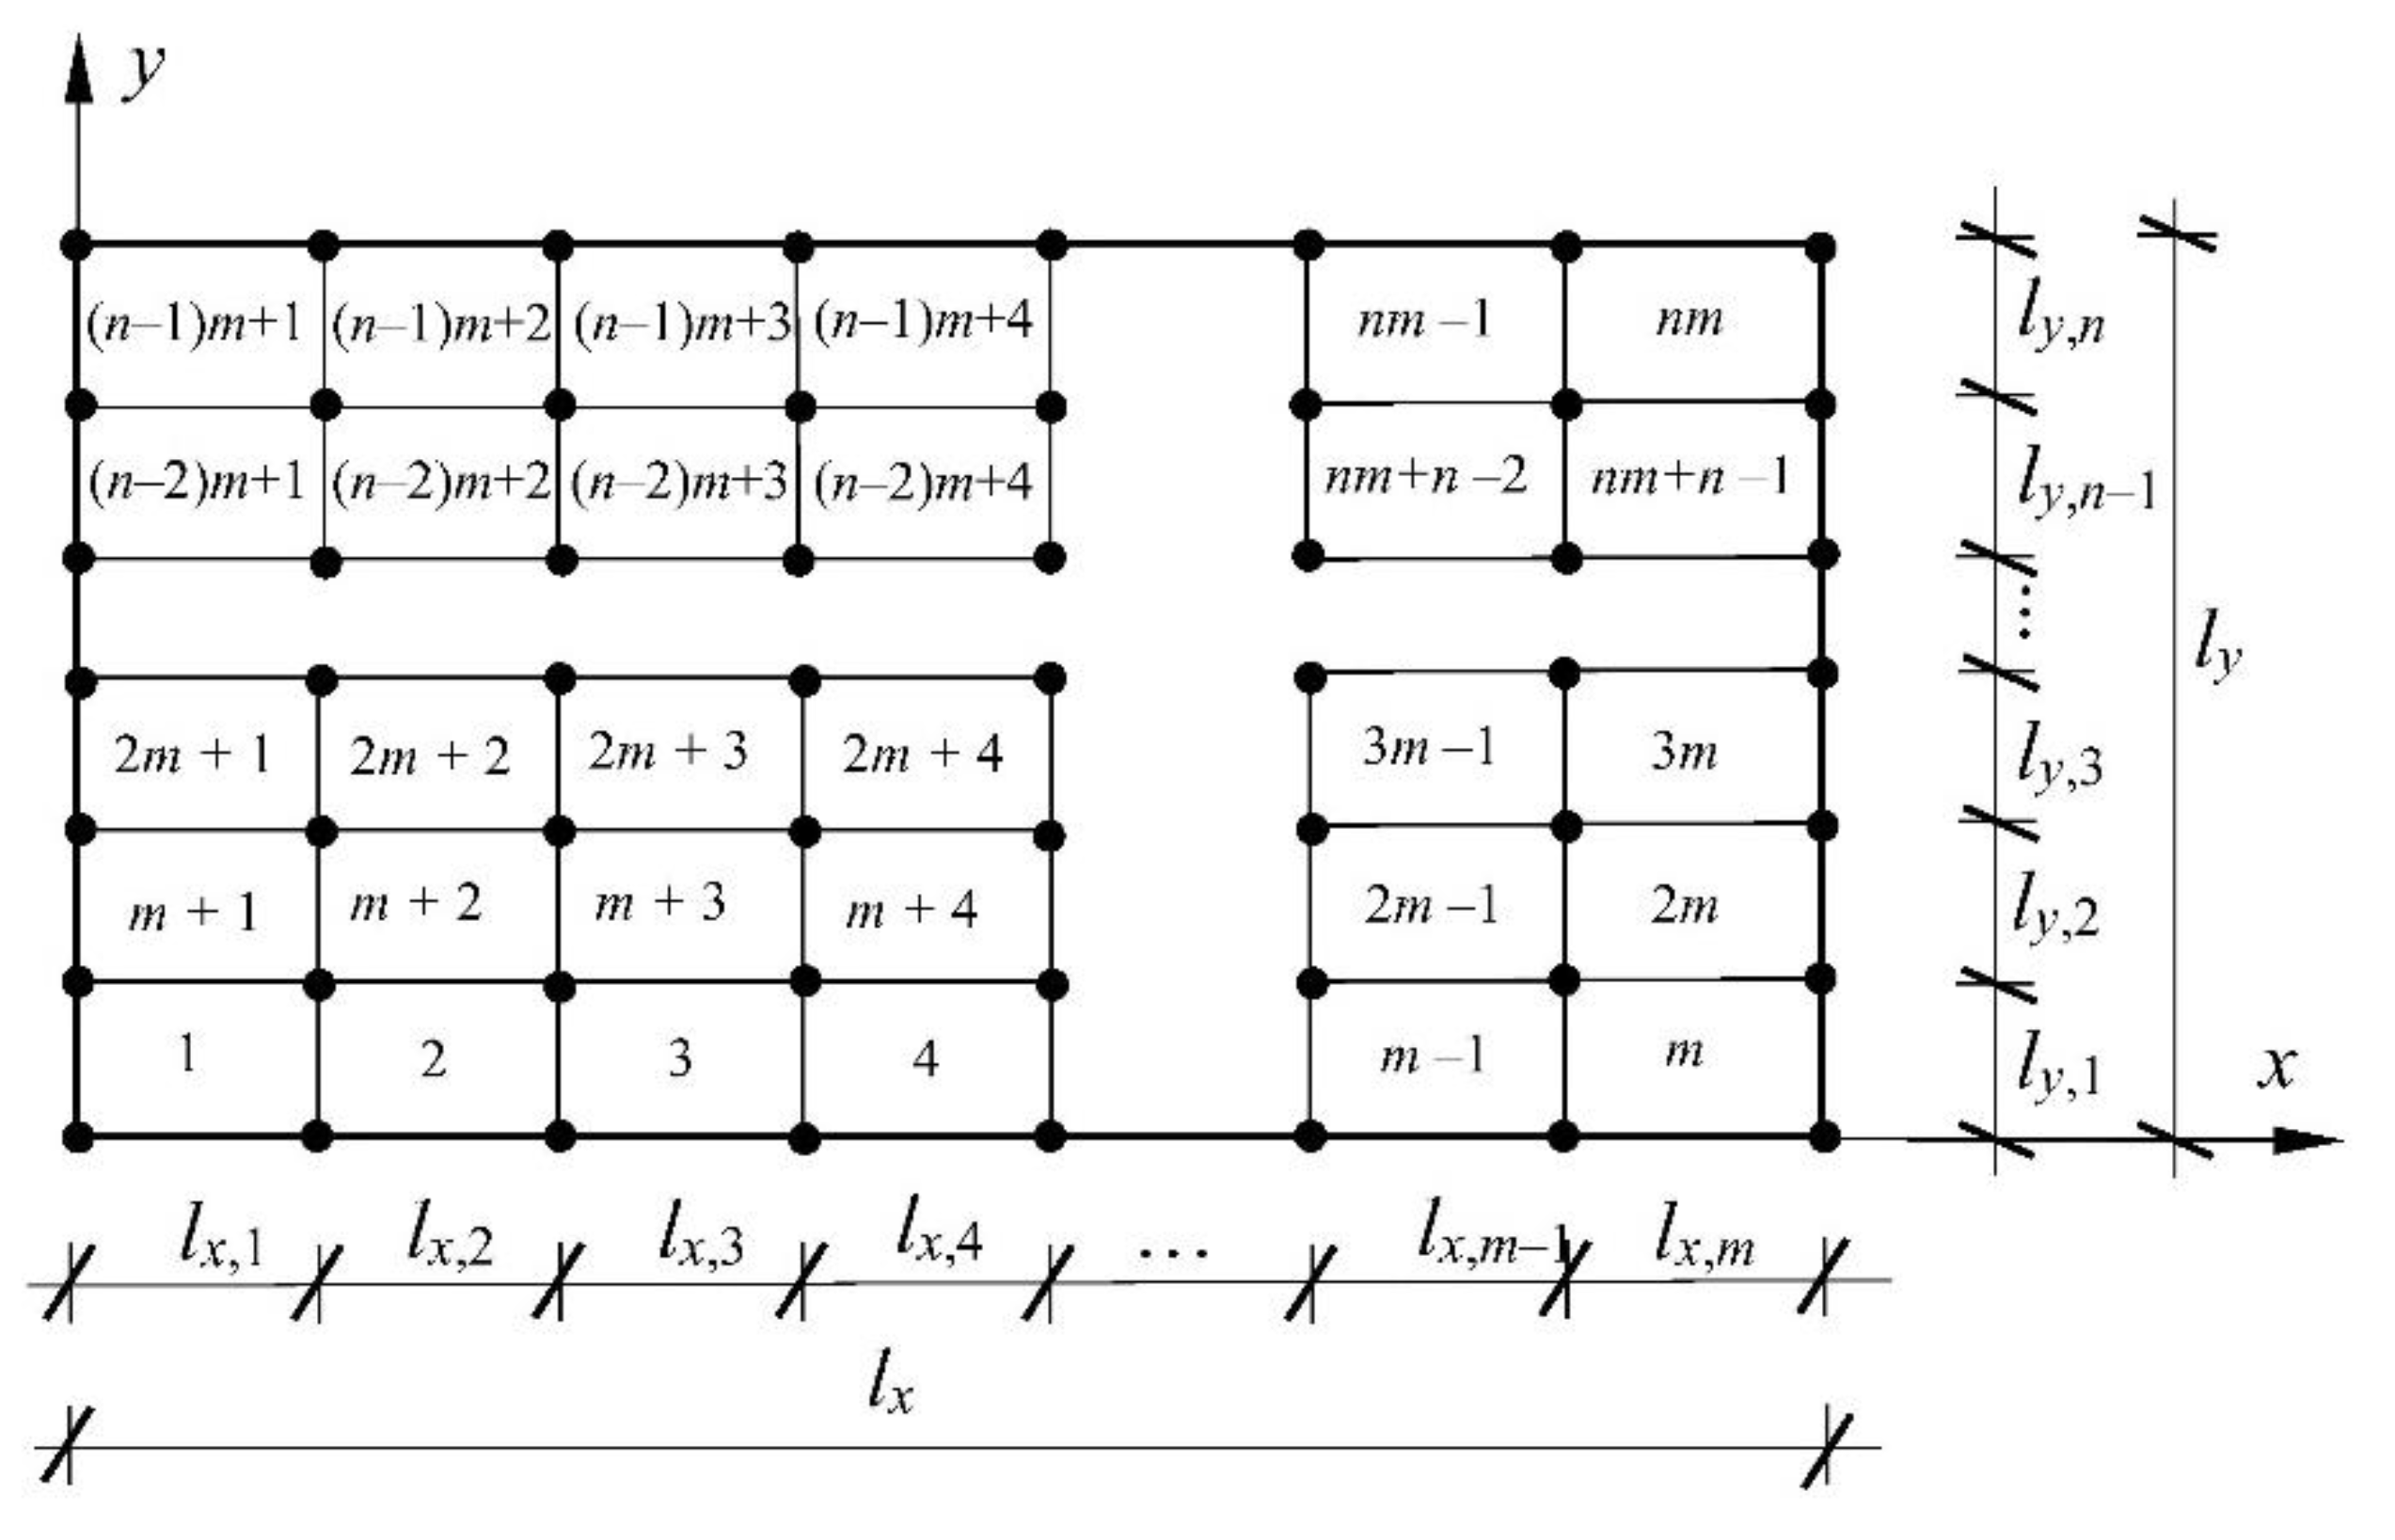 y
(n–1)m+1 (n–1)m+2 (n–1)m+3 (n–1)m+4 nm –1 nm l_{y,n}
(n–2)m+1 (n–2)m+2 (n–2)m+3 (n–2)m+4 nm+n –2 nm+n –1 l_{y,n–1}
⋮
l_y
2m + 1 2m + 2 2m + 3 2m + 4 3m –1 3m l_{y,3}
m + 1 m + 2 m + 3 m + 4 2m –1 2m l_{y,2}
1 2 3 4 m –1 m l_{y,1} x
l_{x,1} l_{x,2} l_{x,3} l_{x,4} ... l_{x,m–1} l_{x,m}
l_x